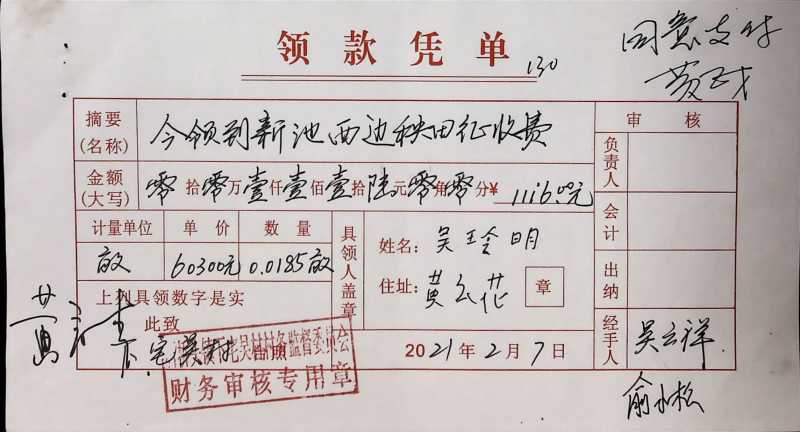 领款凭单
130
同意支付
摘要(名称) 今领到新池西边秧田征收费
审核
金额(大写) 零拾零万壹仟壹佰壹拾陆元零角零分¥ 1116.00元
负责人
计量单位 单价 数量
亩 60300元 0.0185亩
具领人盖章
姓名: 吴玲明
住址: 黄云花 章
会计
出纳
上列具领数字是实
此致
财务审核专用章
2021年2月7日
经手人 吴云祥
俞小松